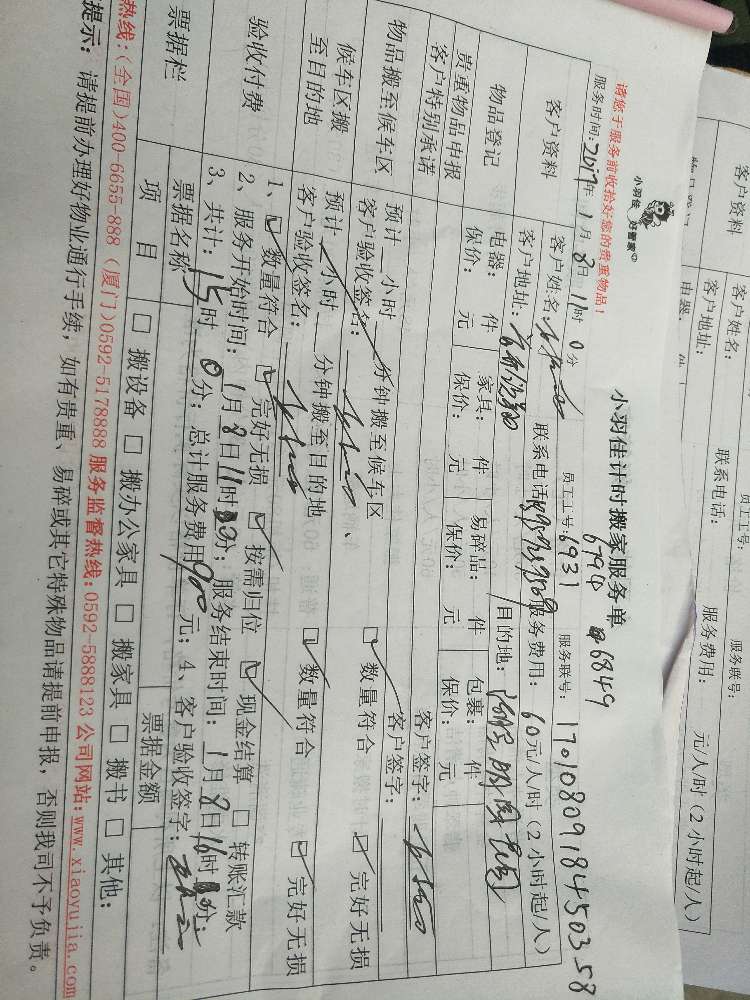 小羽佳 好管家
小羽佳计时搬家服务单
请您于服务前收拾好您的贵重物品！
6794 6849
服务时间：2017年 1月 8日 11时 0分 员工工号：6931 服务联号：170108091845035 8
客户资料 客户姓名： 联系电话： 服务费用：60元/人/时（2小时起/人）
客户地址： 目的地：
物品登记 电器： 件 家具： 件 易碎品： 件 包裹： 件
保价： 元 保价： 元 保价： 元 保价： 元
贵重物品申报
客户特别承诺 客户签字：
客户签字：
物品搬至候车区 预计 小时 分钟搬至候车区 数量符合 完好无损
客户验收签名：
候车区搬至目的地 预计 小时 分钟搬至目的地 数量符合 完好无损
客户验收签名：
验收付费 1、 数量符合 完好无损 按需归位 现金结算 转账汇款
2、服务开始时间：1月8日11时 分；服务结束时间：1月8日16时 分；
3、共计：15时 0分；总计服务费用900元；4、客户验收签字：
票据栏 票据名称 票据金额
项 目 搬设备 搬办公家具 搬家具 搬书 其他：
热线：(全国)400-6655-888 (厦门)0592-5178888 服务监督热线：0592-5888123 公司网站：www.xiaoyujia.com
提示：请提前办理好物业通行手续，如有贵重、易碎或其它特殊物品请提前申报，否则我司不予负责。
员工工号： 服务联号：
客户资料 客户姓名： 联系电话： 服务费用： 元/人/时（2小时起/人）
客户地址：